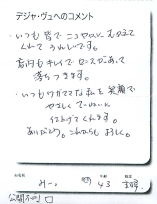 デジャ・ヴュへのコメント
・いつも皆でニコヤカにむかえて
くれてうれしいです。
店内もキレイでセンスがあって
落ちつきます。
・いつもワガママな私を笑顔で
やさしくていねいに
仕上げてくれます。
ありがとう。これからもよろしく。
お名前
みー。
年齢
43
職業
主婦
公開不可 □